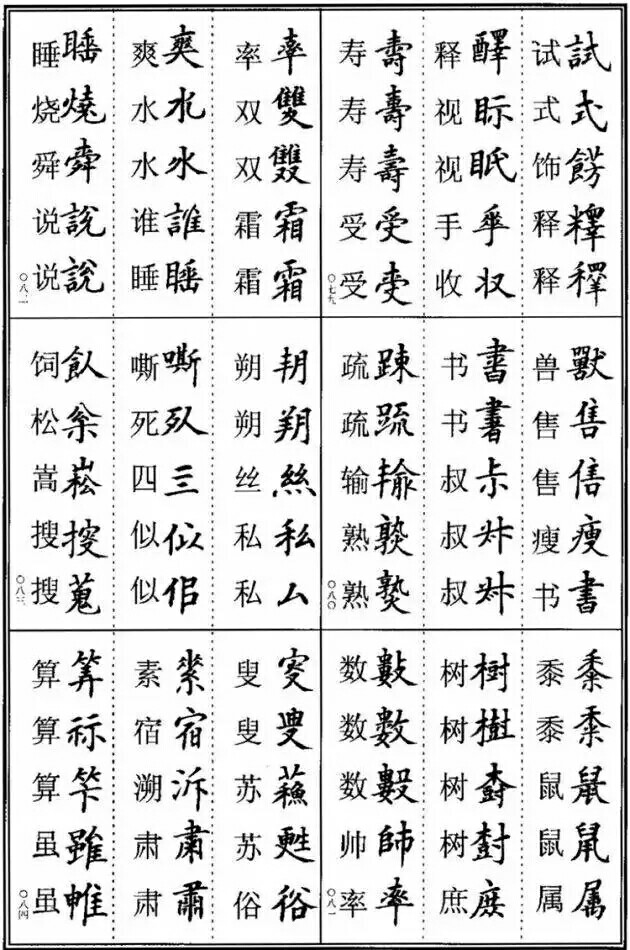 试試 式式 饰餝 释 释釋
释醳 视眎 视眂 手 收収
寿壽 寿壽 寿壽 受受 受
〇七九
兽獸 售售 售 瘦瘦 书書
书書 书書 叔尗 叔 叔
疏踈 疏疏 输输 熟 熟
〇八〇
黍黍 黍 鼠鼠 鼠 属属
树樹 树樹 树 树尌 庶庻
数數 数數 数 帅帥 率率
〇八一
率率 双雙 双雙 霜霜 霜霜
爽爽 水水 水水 谁誰 睡睡
睡睡 烧燒 舜舜 说説 说說
〇八二
朔 朔朔 丝絲 私私 私厶
嘶嘶 死 四亖 似似 似佀
饲飤 松枀 嵩崧 搜 搜蒐
〇八三
叟叜 叟叟 苏蘓 苏甦 俗俗
素 宿宿 溯泝 肃肅 肃
算筭 算祘 算笇 虽雖 虽
〇八四